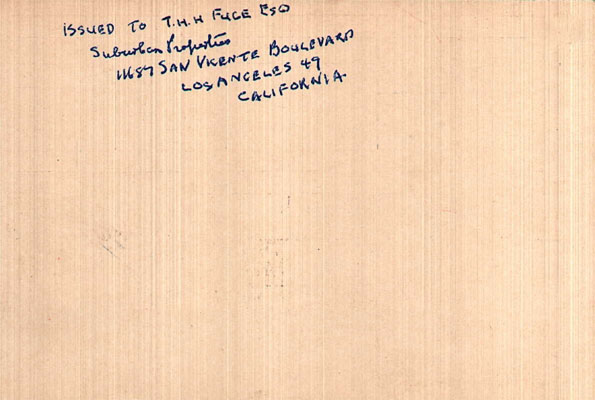 ISSUED TO T.H.H FUGE ESQ
Suburban Properties
11687 SAN VICENTE BOULEVARD
LOS ANGELES 49
CALIFORNIA.